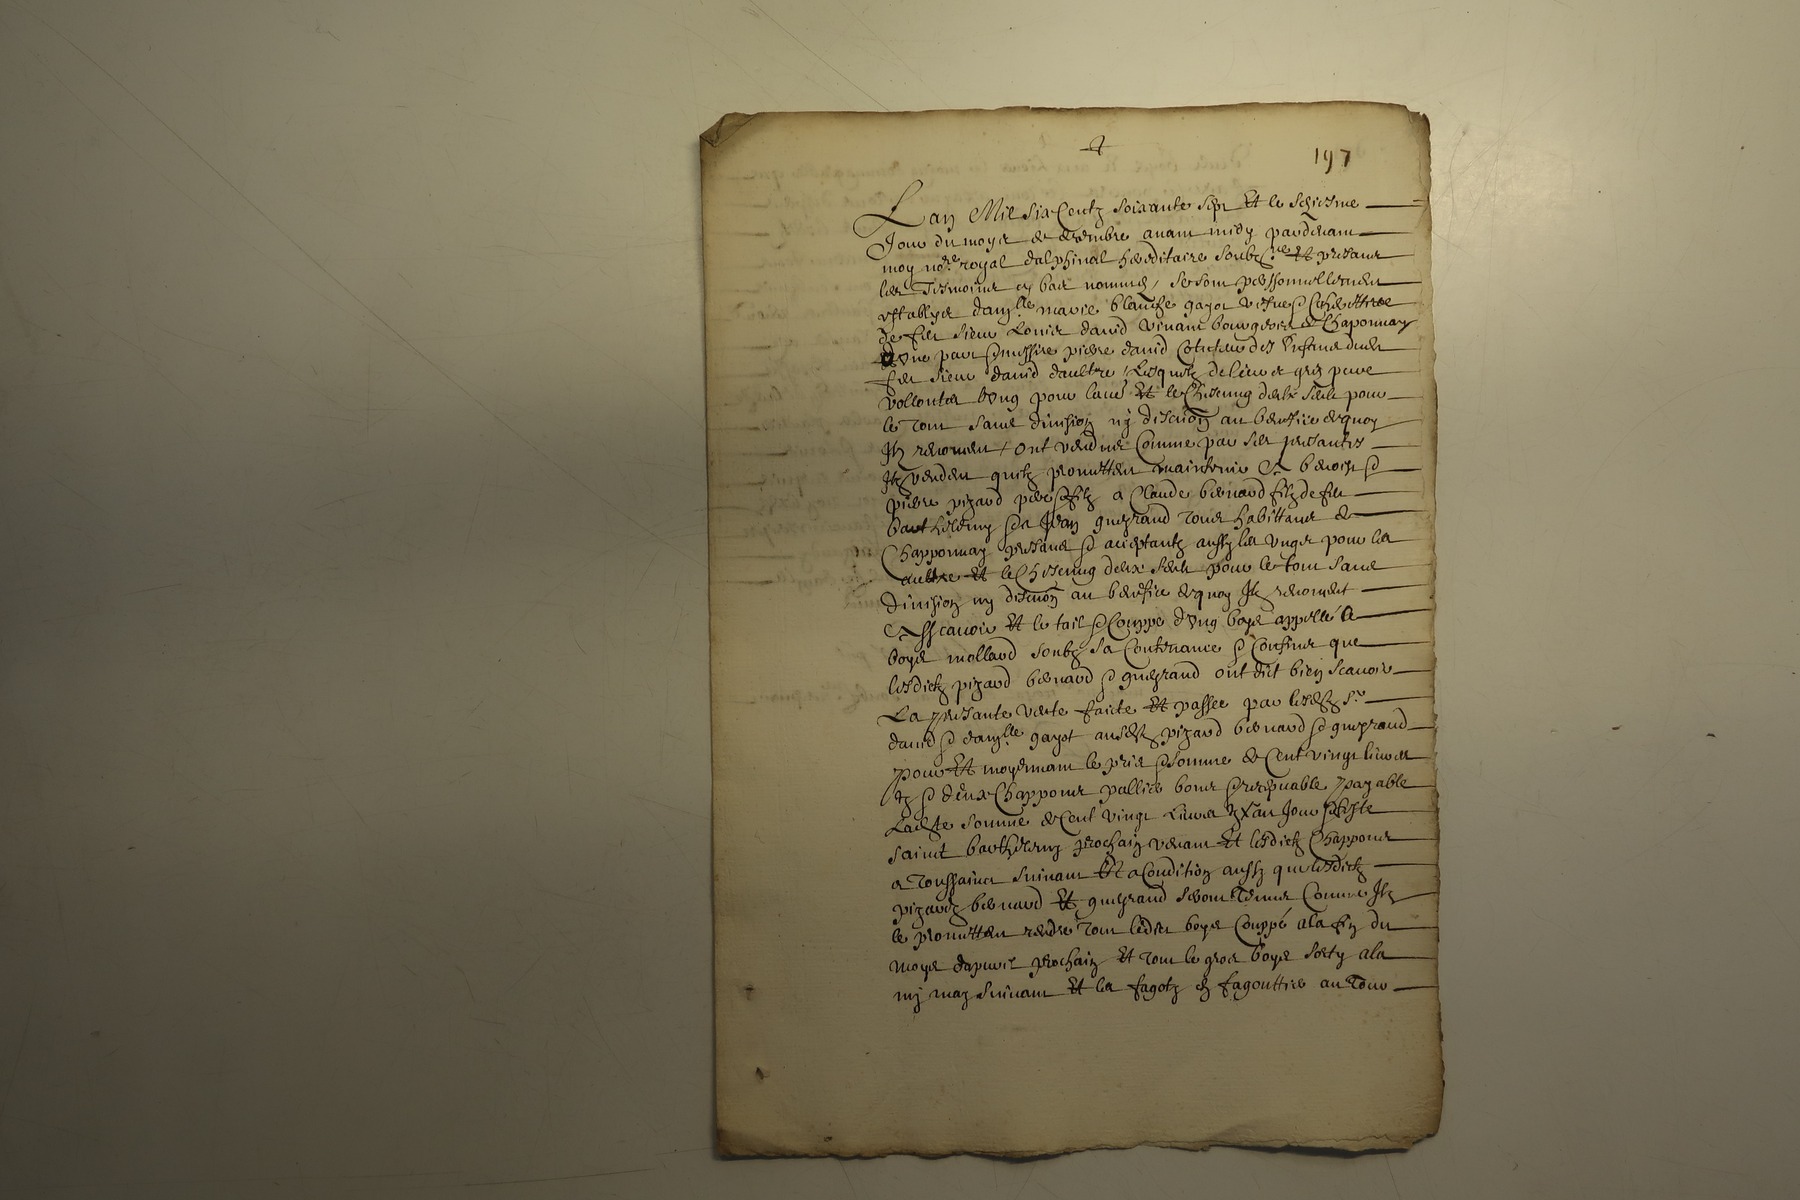 197
Lan Mil six Centz soixante sept Et le seziesme
Jour du moys de decembre avant midy pardevant
moy no.re royal dalphinal hereditaire soubz.né Et presantz
les tesmoins en bas nommés, se sont personnellement
establys dam.lle marie blanche gayot vesve
de feu sieur Louis david vivant bourgeois de Chaponnay
dune part messire pierre david
feu sieur david daultre Lesquelz de leur gré pure
vollonté lung pour lautre Et le Chescung deulx seul pour
le tout sans division ny discution au benefice dequoy
Ilz renoncent ont vendus Comme par ses presantes
Ilz vendent quitz promettent maintenir A benoist &
pierre pizard pere & filz a Claude bernard filz de feu
barthelemy & a Jean guerrand tous habittans de
Chapponnay presans & aceptantz aussy les ungs pour les
aultre Et le Chescung deux seul pour le tout sans
division ny discution au benefice dequoy Ilz renoncent
Asscavoir Et le tail & Couppe dung boys appellé le
boys mollard soubz sa Contenance & Confins que
lesdictz pizard bernard & guerrand ont dict bien scavoir
La presante vente faicte Et passee par lesd. s.r
david & dam.lle gayot ausd. pizard bernard & guerrand
pour Et moyennant le prix & somme de Cent vingt livres
& deux Chappons paillier bons & recepvable payable
Ladicte somme de Cent vingt Livres jour & feste
sainct barthelemy prochain venant Et lesdictz Chappons
a Toussainct suivant Et a Condition aussy que lesdictz
pizardz bernard Et guerrand seront tenus Comme Ilz
le promettent rendre tout ledict boys Couppé a la fin du
moys dapvril prochain Et tout le gros boys sorty a la
my may suivant Et les fagotz & fagottier au tour